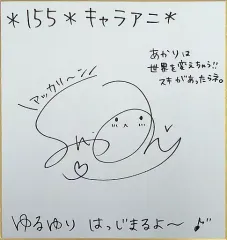 *155*キャラアニ*
あかりは
世界を変えちゃう!!
スキがあったらネ。
アッカリ〜ン
ゆるゆり はっじまるよ〜♪